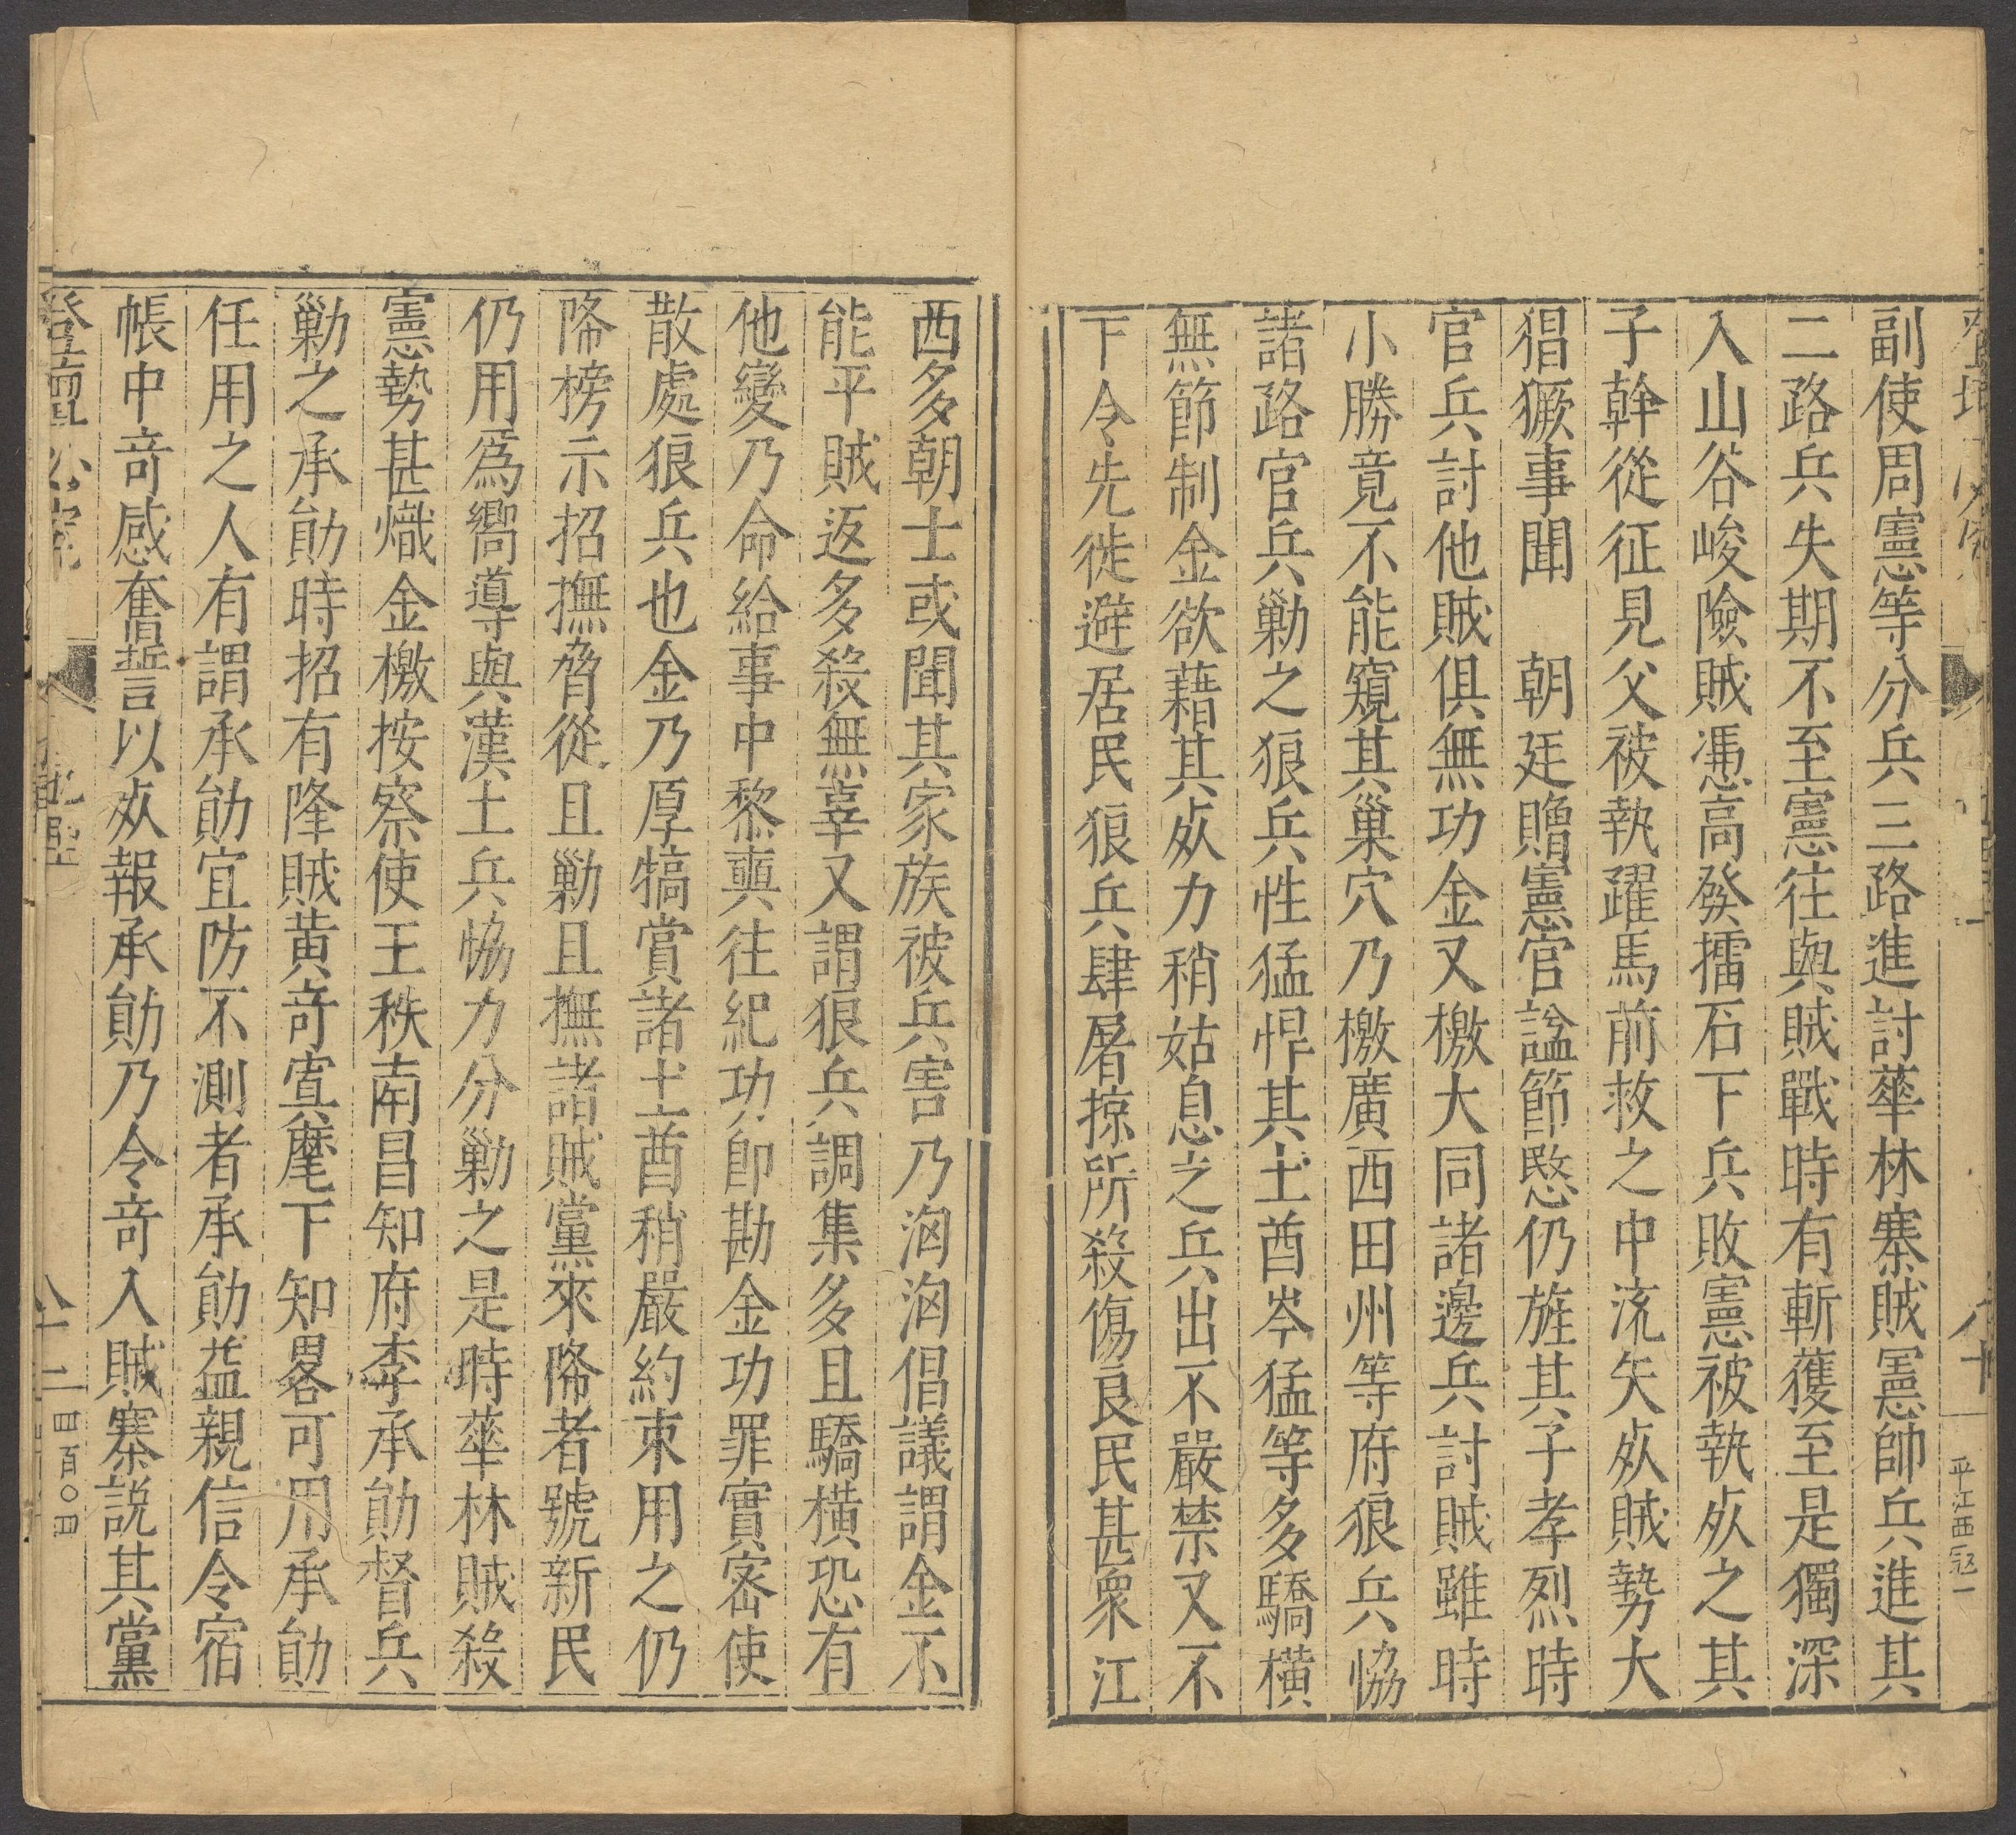 副使周憲等分兵三路進討華林寨賊憲帥兵進其
二路兵失期不至憲往與賊戰時有斬獲至是獨深
入山谷峻險賊憑高發擂石下兵敗憲被執死之其
子幹從征見父被執躍馬前救之中流矢死賊勢大
猖獗事聞　朝廷贈憲官諡節愍仍旌其子孝烈時
官兵討他賊俱無功金又檄大同諸邊兵討賊雖時
小勝竟不能窺其巢穴乃檄廣西田州等府狼兵恊
諸路官兵勦之狼兵性猛悍其土酋岑猛等多驕橫
無節制金欲藉其死力稍姑息之兵出不嚴禁又不
下令先徙避居民狼兵肆屠掠所殺傷良民甚衆江
西多朝士或聞其家族被兵害乃洶洶倡議謂金不
能平賊返多殺無辜又謂狼兵調集多且驕橫恐有
他變乃命給事中黎奭往紀功卽勘金功罪實密使
散處狼兵也金乃厚犒賞諸土酋稍嚴約束用之仍
降榜示招撫脅從且勦且撫諸賊黨來降者號新民
仍用爲嚮導與漢土兵恊力分勦之是時華林賊殺
憲勢甚熾金檄按察使王秩南昌知府李承勛督兵
勦之承勛時招有降賊黃奇寘麾下知畧可用承勛
任用之人有謂承勛宜防不測者承勛益親信令宿
帳中奇感奮誓以死報承勛乃令奇入賊寨説其黨
八十
平江西寇一
八十二
四百〇四